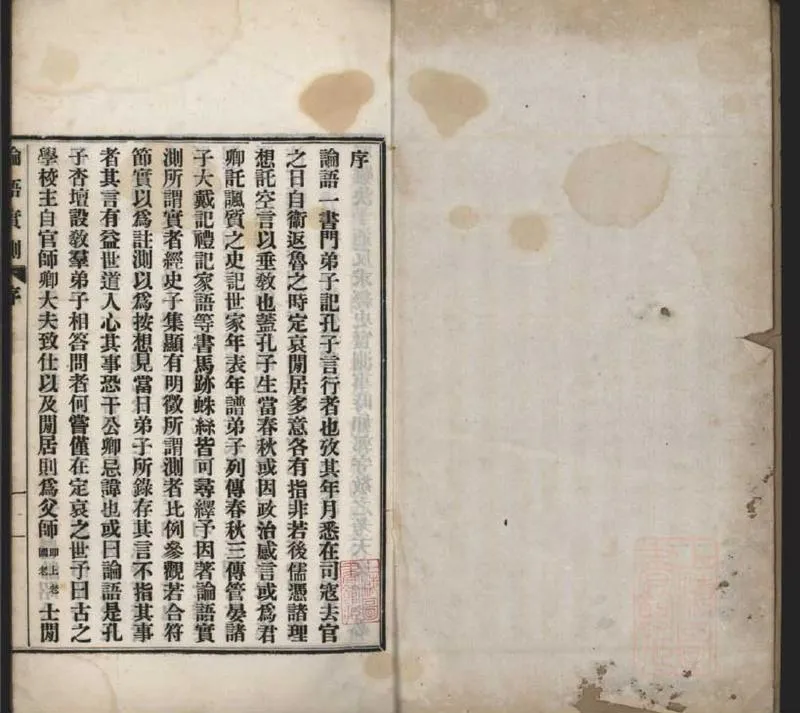 序
論語一書門弟子記孔子言行者也攷其年月悉在司寇去官
之日自衞返魯之時定哀閒居多意各有指非若後儒憑諸理
想託空言以垂教也蓋孔子生當春秋或因政治感言或爲君
卿託諷質之史記世家年表年譜弟子列傳春秋三傳管晏諸
子大戴記禮記家語等書馬跡蛛絲皆可尋繹予因著論語實
測所謂實者經史子集顯有明徵所謂測者比例參觀若合符
節實以爲註測以爲按想見當日弟子所錄存其言不指其事
者其言有益世道人心其事恐干公卿忌諱也或曰論語是孔
子杏壇設教羣弟子相答問者何嘗僅在定哀之世予曰古之
學校主自官師卿大夫致仕以及閒居則爲父師即上老國老士閒
論語實測 序